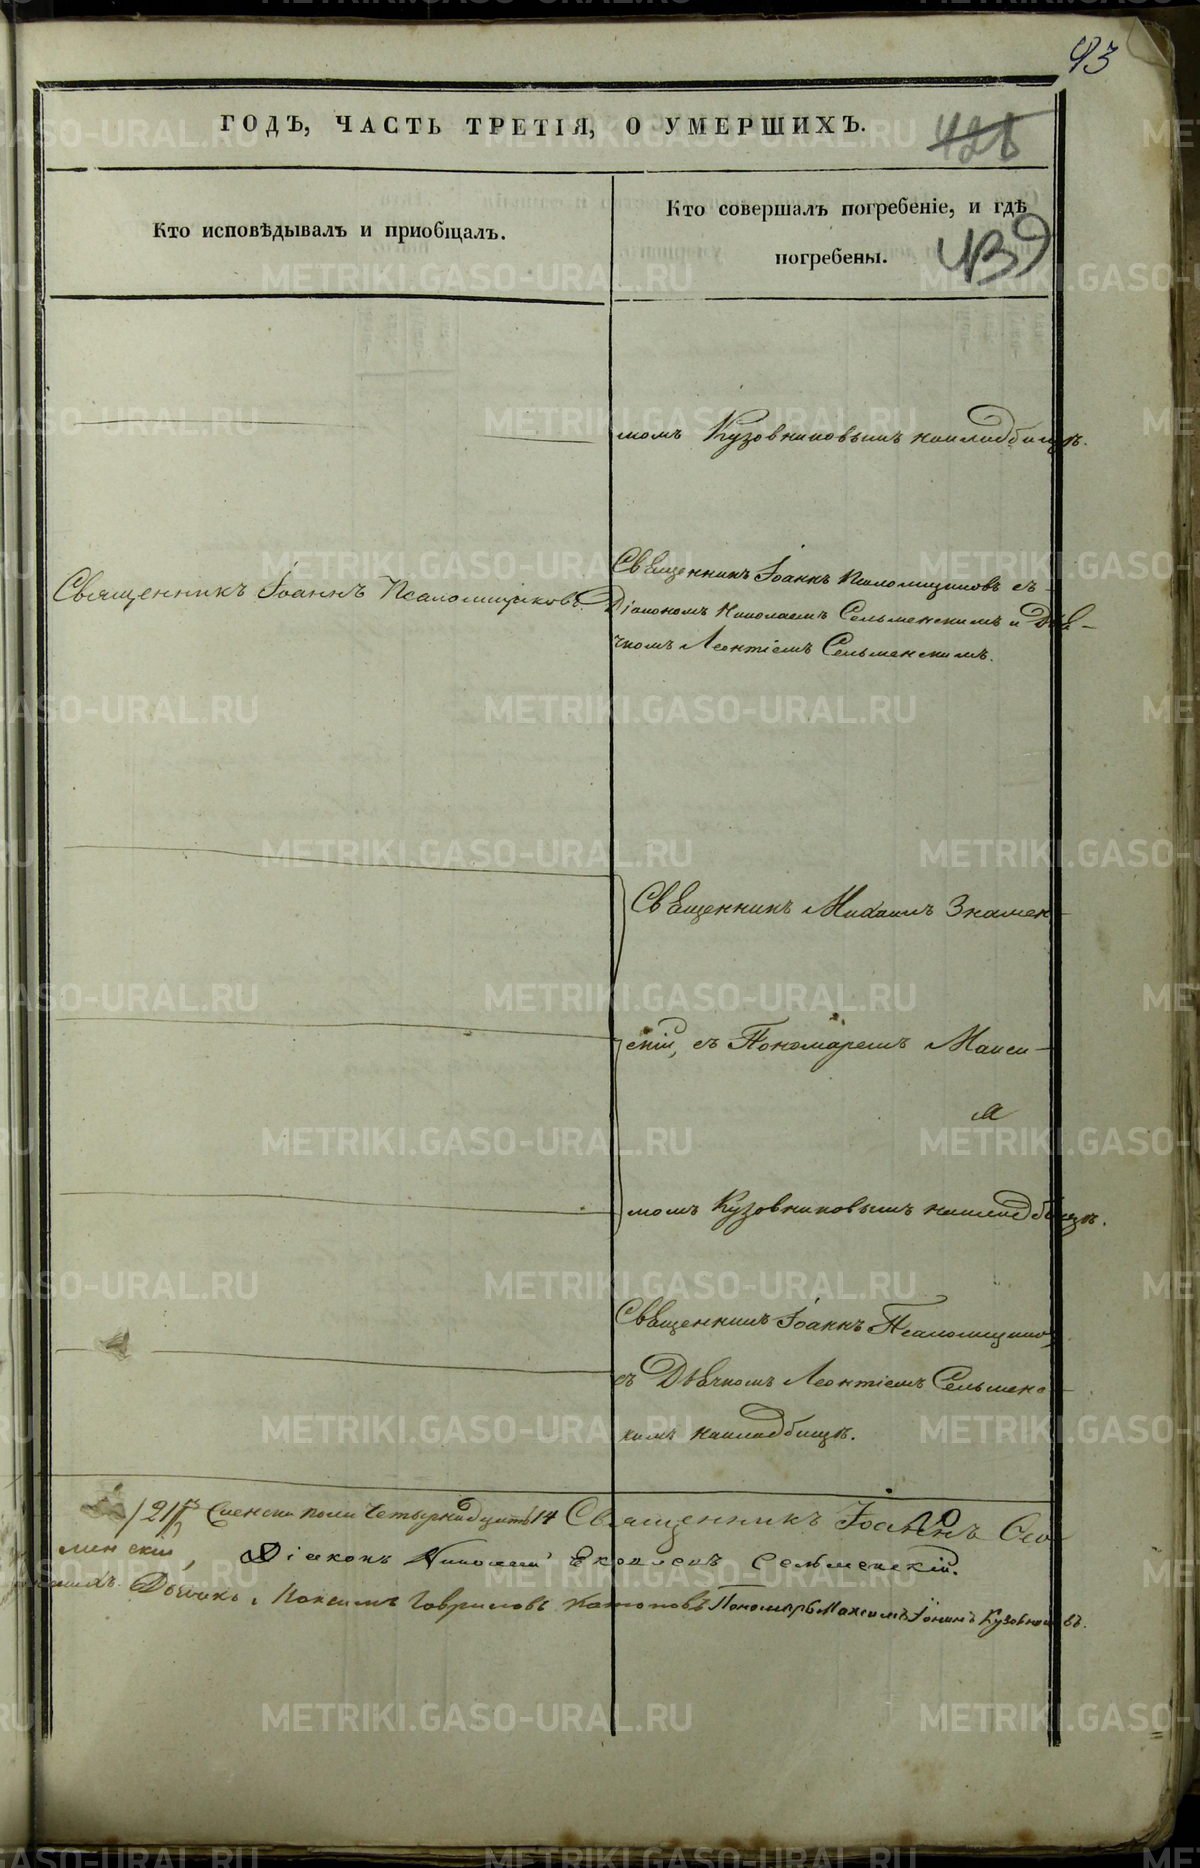 93
ГОДЪ, ЧАСТЬ ТРЕТІЯ, О УМЕРШИХЪ.
428
Кто исповѣдывалъ и приобщалъ.
Кто совершалъ погребеніе, и гдѣ
погребены.
439
момъ Кузовниковымъ накладбищѣ.
Священникъ Іоаннъ Псаломщиковъ.
Священникъ Іоаннъ Псаломщиковъ съ
Діакономъ Николаемъ Сельменскимъ и Дья-
чкомъ Леонтіемъ Сельменскимъ.
Священникъ Михаилъ Знамен-
скій, съ Пономаремъ Макси-
а
момъ Кузовниковымъ накладбищѣ.
Священникъ Іоаннъ Псаломщиков
съ Дьячкомъ Леонтіемъ Сельменс-
кимъ накладбищѣ.
/21/ женска пола Четырнадцать 14 Священникъ Іоаннъ
минскій, Діаконъ Николай Сельменскій.
Дьячикъ, Максимъ Гавриловъ Пономарь Максимъ Іонинъ Кузовниковъ.
METRIKI.GASO-URAL.RU